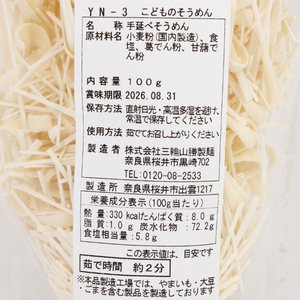 YN-3 こどものそうめん
名称 手延べそうめん
原材料名 小麦粉(国内製造)、食
塩、葛でん粉、甘藷で
ん粉
内容量 100g
賞味期限 2026.08.31
保存方法 直射日光・高温多湿を避け、
常温で保存してください。
使用方法 茹でてお召し上がりください。
製造者 株式会社三輪山勝製麺
奈良県桜井市黒崎702
TEL:0120-08-2533
製造所 奈良県桜井市出雲1217
栄養成分表示(100g当たり)
熱量:330kcalたんぱく質:8.0g
脂質:1.0g 炭水化物:72.2g
食塩相当量:5.8g
この表示値は、目安です
茹で時間 約2分
※本品製造工場では、やまいも・大豆
・ごまを含む製品を製造しております